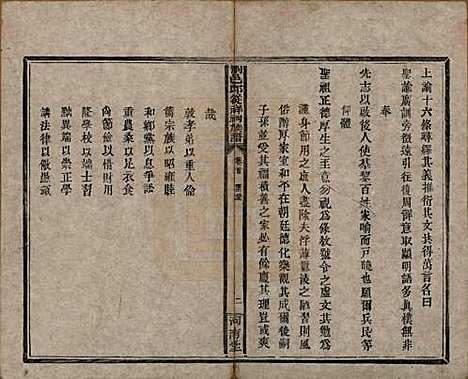 上諭十六條尋繹其義推衍其文共得萬言名曰
聖諭廣訓旁徵遠引往復周詳意取顯明語多直樸無非
奉
先志以啟後人使羣黎百姓家喻而戶曉也願爾兵民等
仰體
聖祖正德厚生之至意勿視為條教號令之虛文共勉為
謹身節用之庶人盡除夫浮薄囂凌之陋習則風
俗醇厚家室和平在朝廷德化樂觀其成爾後嗣
子孫並受其福積善之家必有餘慶其理豈或爽
哉
敦孝弟以重人倫
篤宗族以昭雍睦
和鄉黨以息爭訟
重農桑以足衣食
尚節儉以惜財用
隆學校以端士習
黜異端以崇正學
講法律以儆愚頑
卷首
二
河南堂